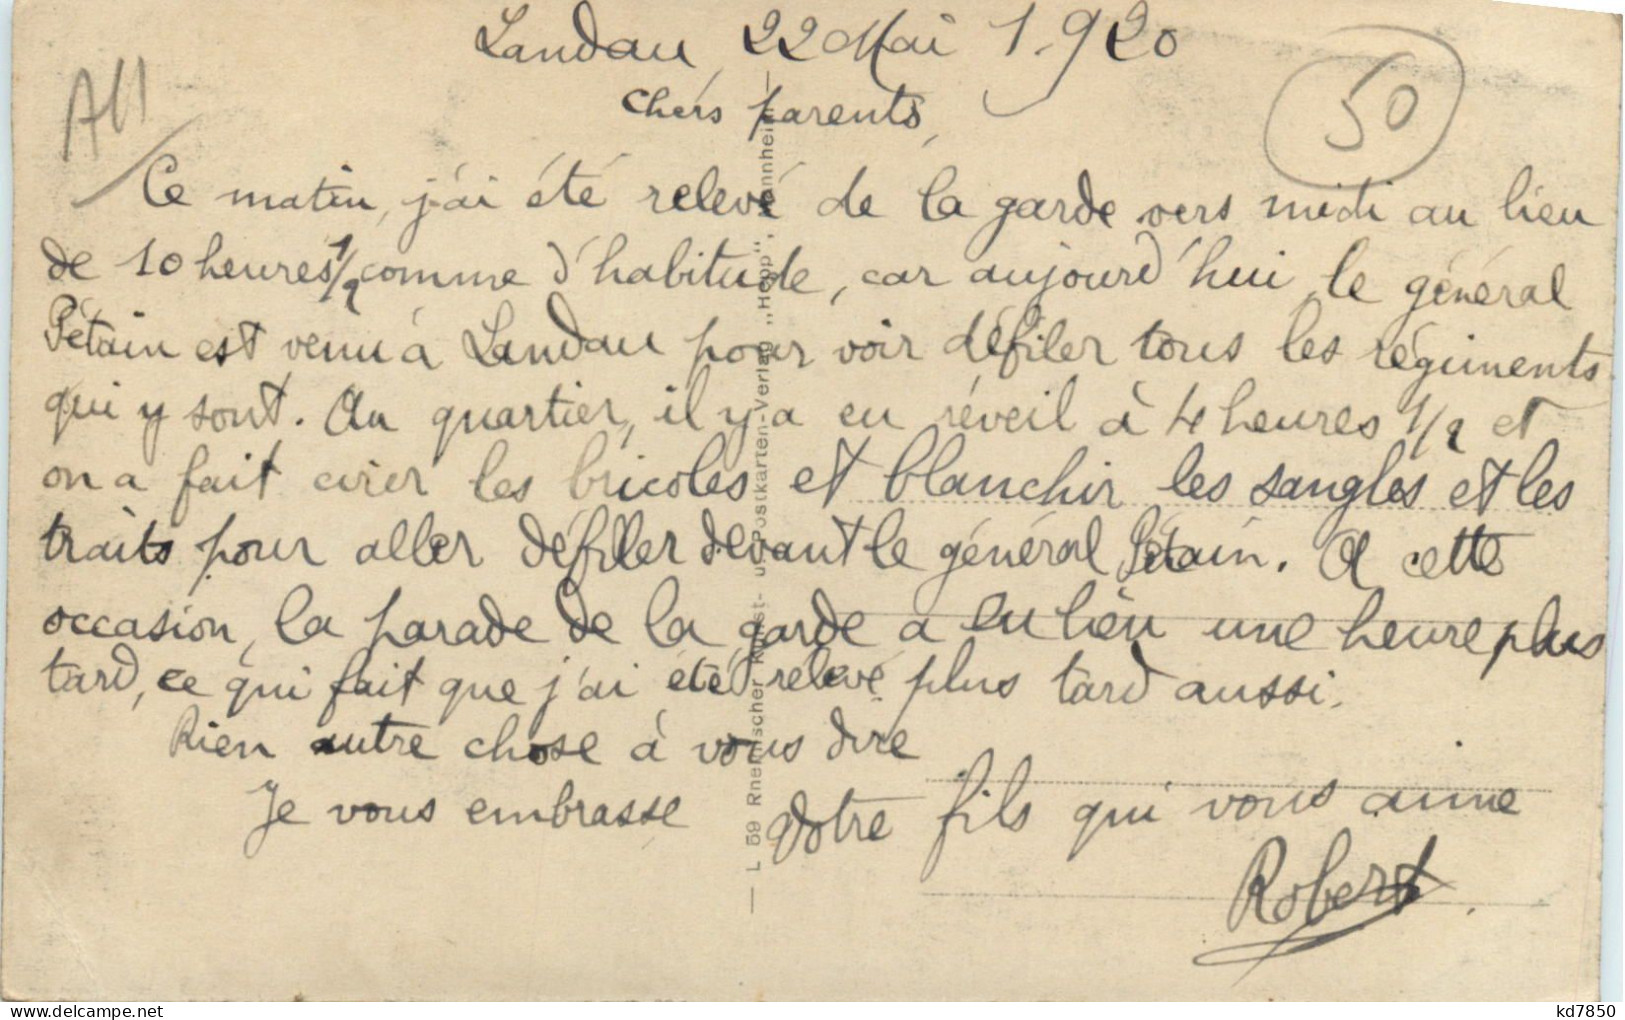 Landau 22 Mai 1.920
50
All
chers parents,
Ce matin, j'ai été relevé de la garde vers midi au lieu
de 10 heures 1/2 comme d'habitude, car aujourd'hui, le général
Pétain est venu à Landau pour voir défiler tous les régiments
qui y sont. Au quartier, il y a eu réveil à 4 heures 1/2 et
on a fait cirer les bricoles et blanchir les sangles et les
traits pour aller défiler devant le général Pétain. A cette
occasion, la parade de la garde a eu lieu une heure plus
tard, ce qui fait que j'ai été relevé plus tard aussi.
Rien autre chose à vous dire
Je vous embrasse Votre fils qui vous aime
Robert.
— L 59 Rheinischer Kunst- u. Postkarten-Verlag „Hepp", Mannheim —
kd7850